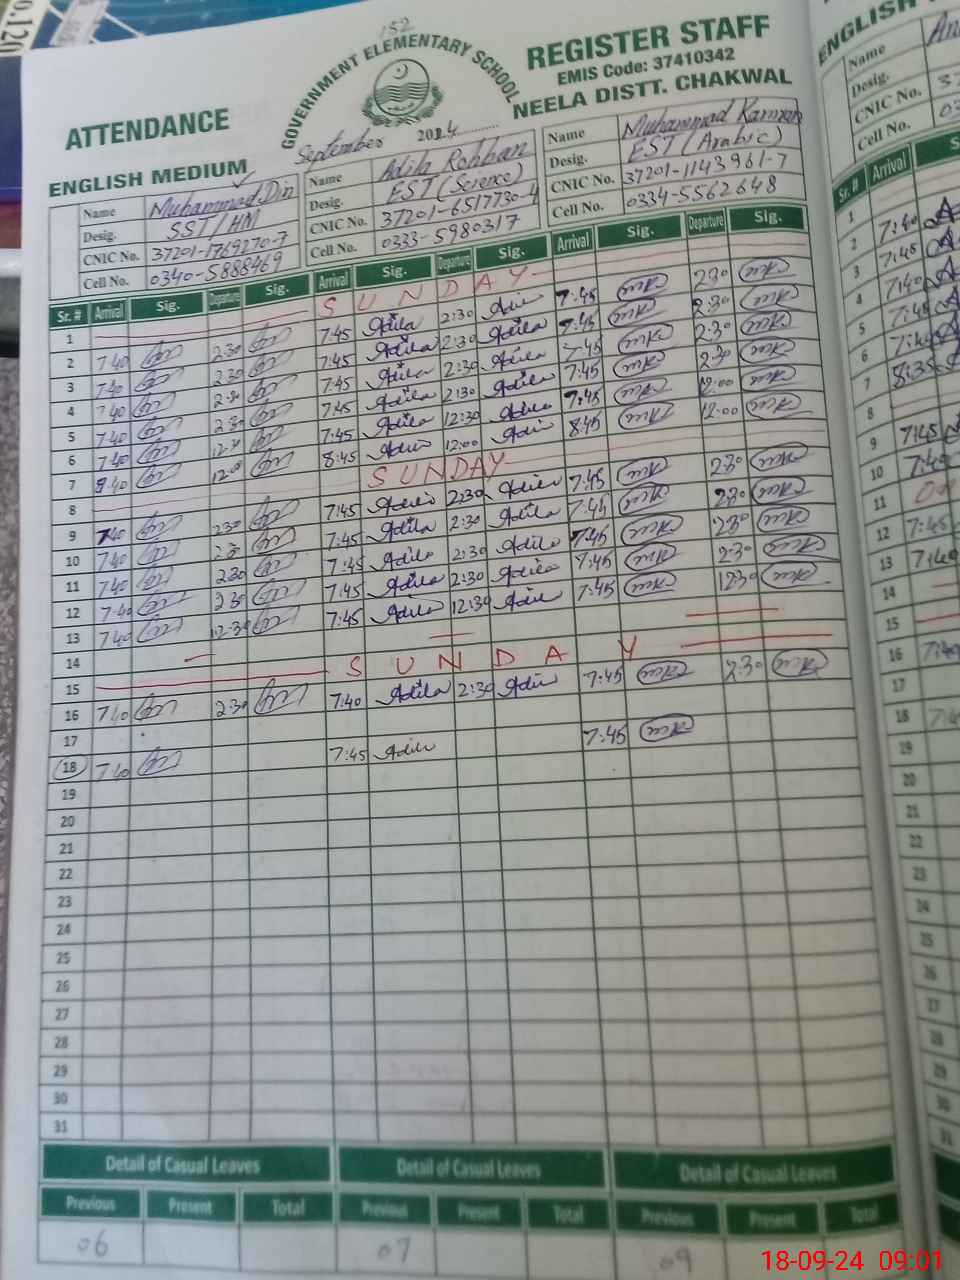 0.120
152
ATTENDANCE
GOVERNMENT ELEMENTARY SCHOOL
REGISTER STAFF
EMIS Code: 37410342
NEELA DISTT. CHAKWAL
ENGLISH MEDIUM
September 2024
Name Muhammad Din
Desig. SST/HM
CNIC No. 37201-1769270-7
Cell No. 0340-5888469
Name Adila Rohban
Desig. EST (Science)
CNIC No. 37201-6517730-4
Cell No. 0333-5980317
Name Muhammad Kamran
Desig. EST (Arabic)
CNIC No. 37201-1143961-7
Cell No. 0334-5562648
Sr. # Arrival Sig. Departure Sig. Arrival Sig. Departure Sig. Arrival Sig. Departure Sig.
1 SUNDAY
2 7:40 2:30 7:45 Adila 2:30 Adila 7:45 2:30
3 7:40 2:30 7:45 Adila 2:30 Adila 7:45 2:30
4 7:40 2:30 7:45 Adila 2:30 Adila 7:45 2:30
5 7:40 2:30 7:45 Adila 2:30 Adila 7:45 2:30
6 7:40 12:30 7:45 Adila 12:30 Adila 7:45 12:00
7 8:40 12:00 8:45 Adila 12:00 Adila 8:45 12:00
8 SUNDAY
9 7:40 2:30 7:45 Adila 2:30 Adila 7:45 2:30
10 7:40 2:30 7:45 Adila 2:30 Adila 7:45 2:30
11 7:40 2:30 7:45 Adila 2:30 Adila 7:45 2:30
12 7:40 2:30 7:45 Adila 2:30 Adila 7:45 2:30
13 7:40 12:30 7:45 Adila 12:30 Adila 7:45 12:30
14
15 SUNDAY
16 7:40 2:30 7:40 Adila 2:30 Adila 7:45 2:30
17
18 7:40 7:45 Adila 7:45
19
20
21
22
23
24
25
26
27
28
29
30
31
Detail of Casual Leaves Detail of Casual Leaves Detail of Casual Leaves
Previous Present Total Previous Present Total Previous Present Total
06 07 09
ENGLISH
Name
Desig.
CNIC No. 37
Cell No. 03
Sr. # Arrival
1
2 7:40
3 7:45
4 7:40
5 7:45
6 7:40
7 8:35
8
9 7:45
10 7:40
11
12 7:45
13 7:40
14
15
16 7:40
17
18
19
20
21
22
23
24
25
26
27
28
29
30
31
18-09-24 09:01